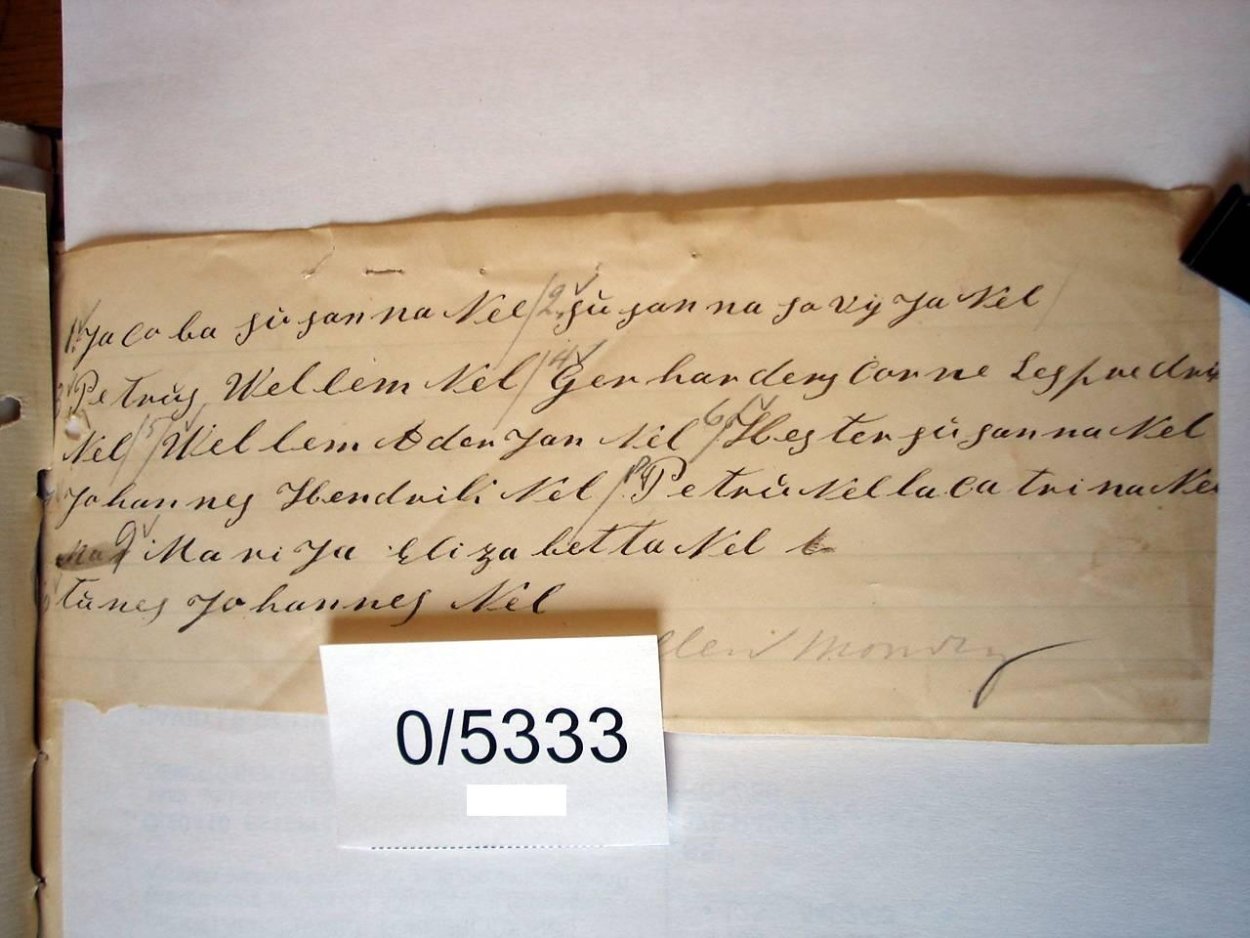 1. Jacoba susanna Nel / 2. susanna savyja Nel /
3 Petrus Wellem Nel / 4 Gerhardes Corne Lesfredrik
Nel / 5 Wellem Aderjan Nel 6/ Hester susanna Nel
Johannes Hendrik Nel / 8 Petrus Nella Catrina Nel
9 Marija Elizabetta Nel
tunes Johannes Nel
0/5333